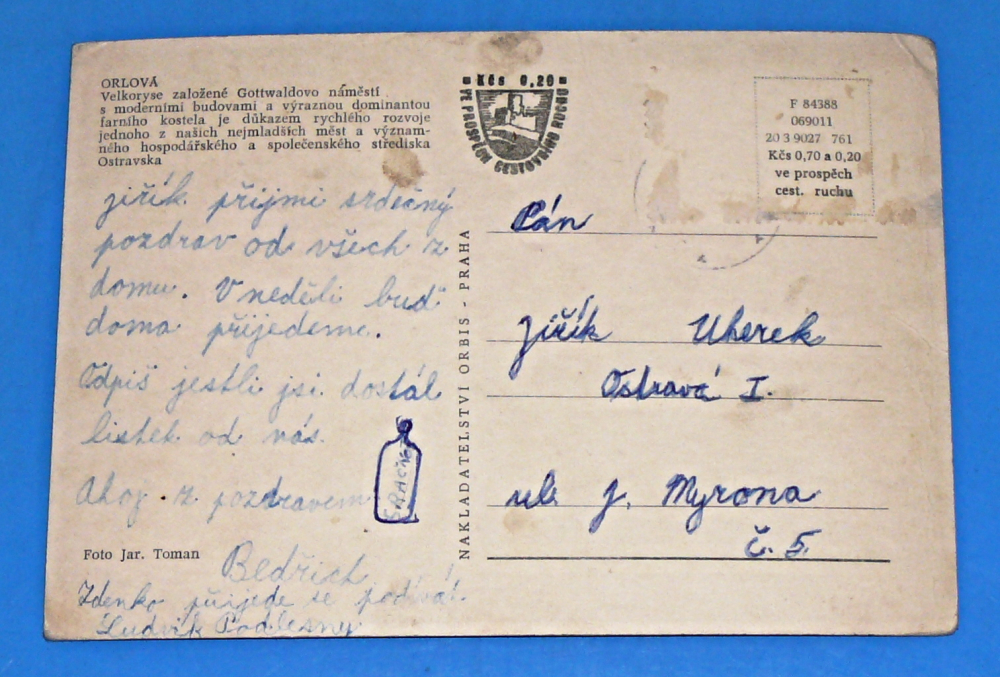 ORLOVÁ
Velkoryse založené Gottwaldovo náměstí
s moderními budovami a výraznou dominantou
farního kostela je důkazem rychlého rozvoje
jednoho z našich nejmladších měst a význam-
ného hospodářského a společenského střediska
Ostravska
Jiřík přijmi srdečný
pozdrav od všech z
domu. V neděli buď
doma přijedeme.
Odpiš jestli jsi dostál
lístek od nás.
Ahoj z pozdravem
Bedřich
Zdenko přijede se podívat
Ludvík Podlesny
Foto Jar. Toman
NAKLADATELSTVÍ ORBIS - PRAHA
Kčs 0,20
VE PROSPĚCH CESTOVNÍHO RUCHU
F 84388
069011
20 3 9027 761
Kčs 0,70 a 0,20
ve prospěch
cest. ruchu
Pán
Jiřík Uherek
Ostravá I.
ul. J. Myrona
č. 5.